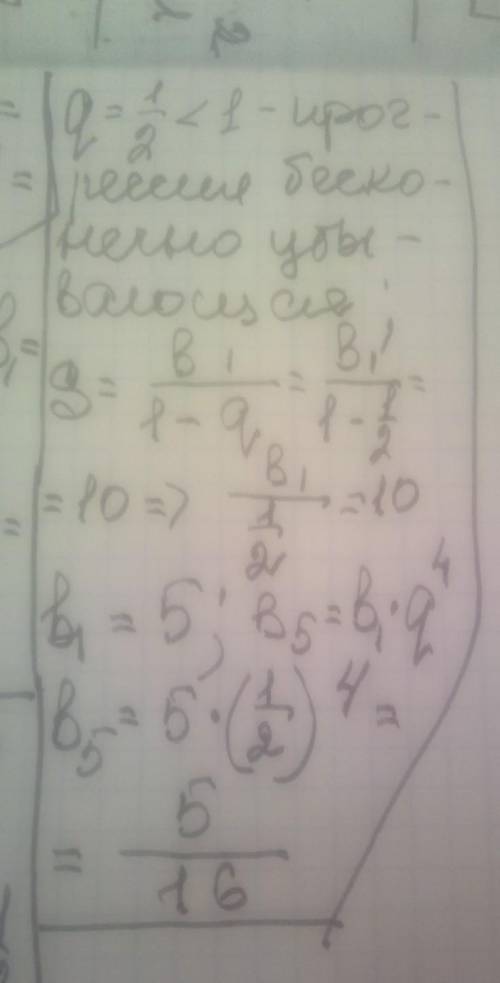 q = 1/2 < 1 - прог-
рессия беско-
нечно убы-
вающая:
S = b₁/(1 - q) = b₁/(1 - 1/2) =
= 10 => b₁/(1/2) = 10
b₁ = 5; b₅ = b₁·q⁴
b₅ = 5·(1/2)⁴ =
= 5/16